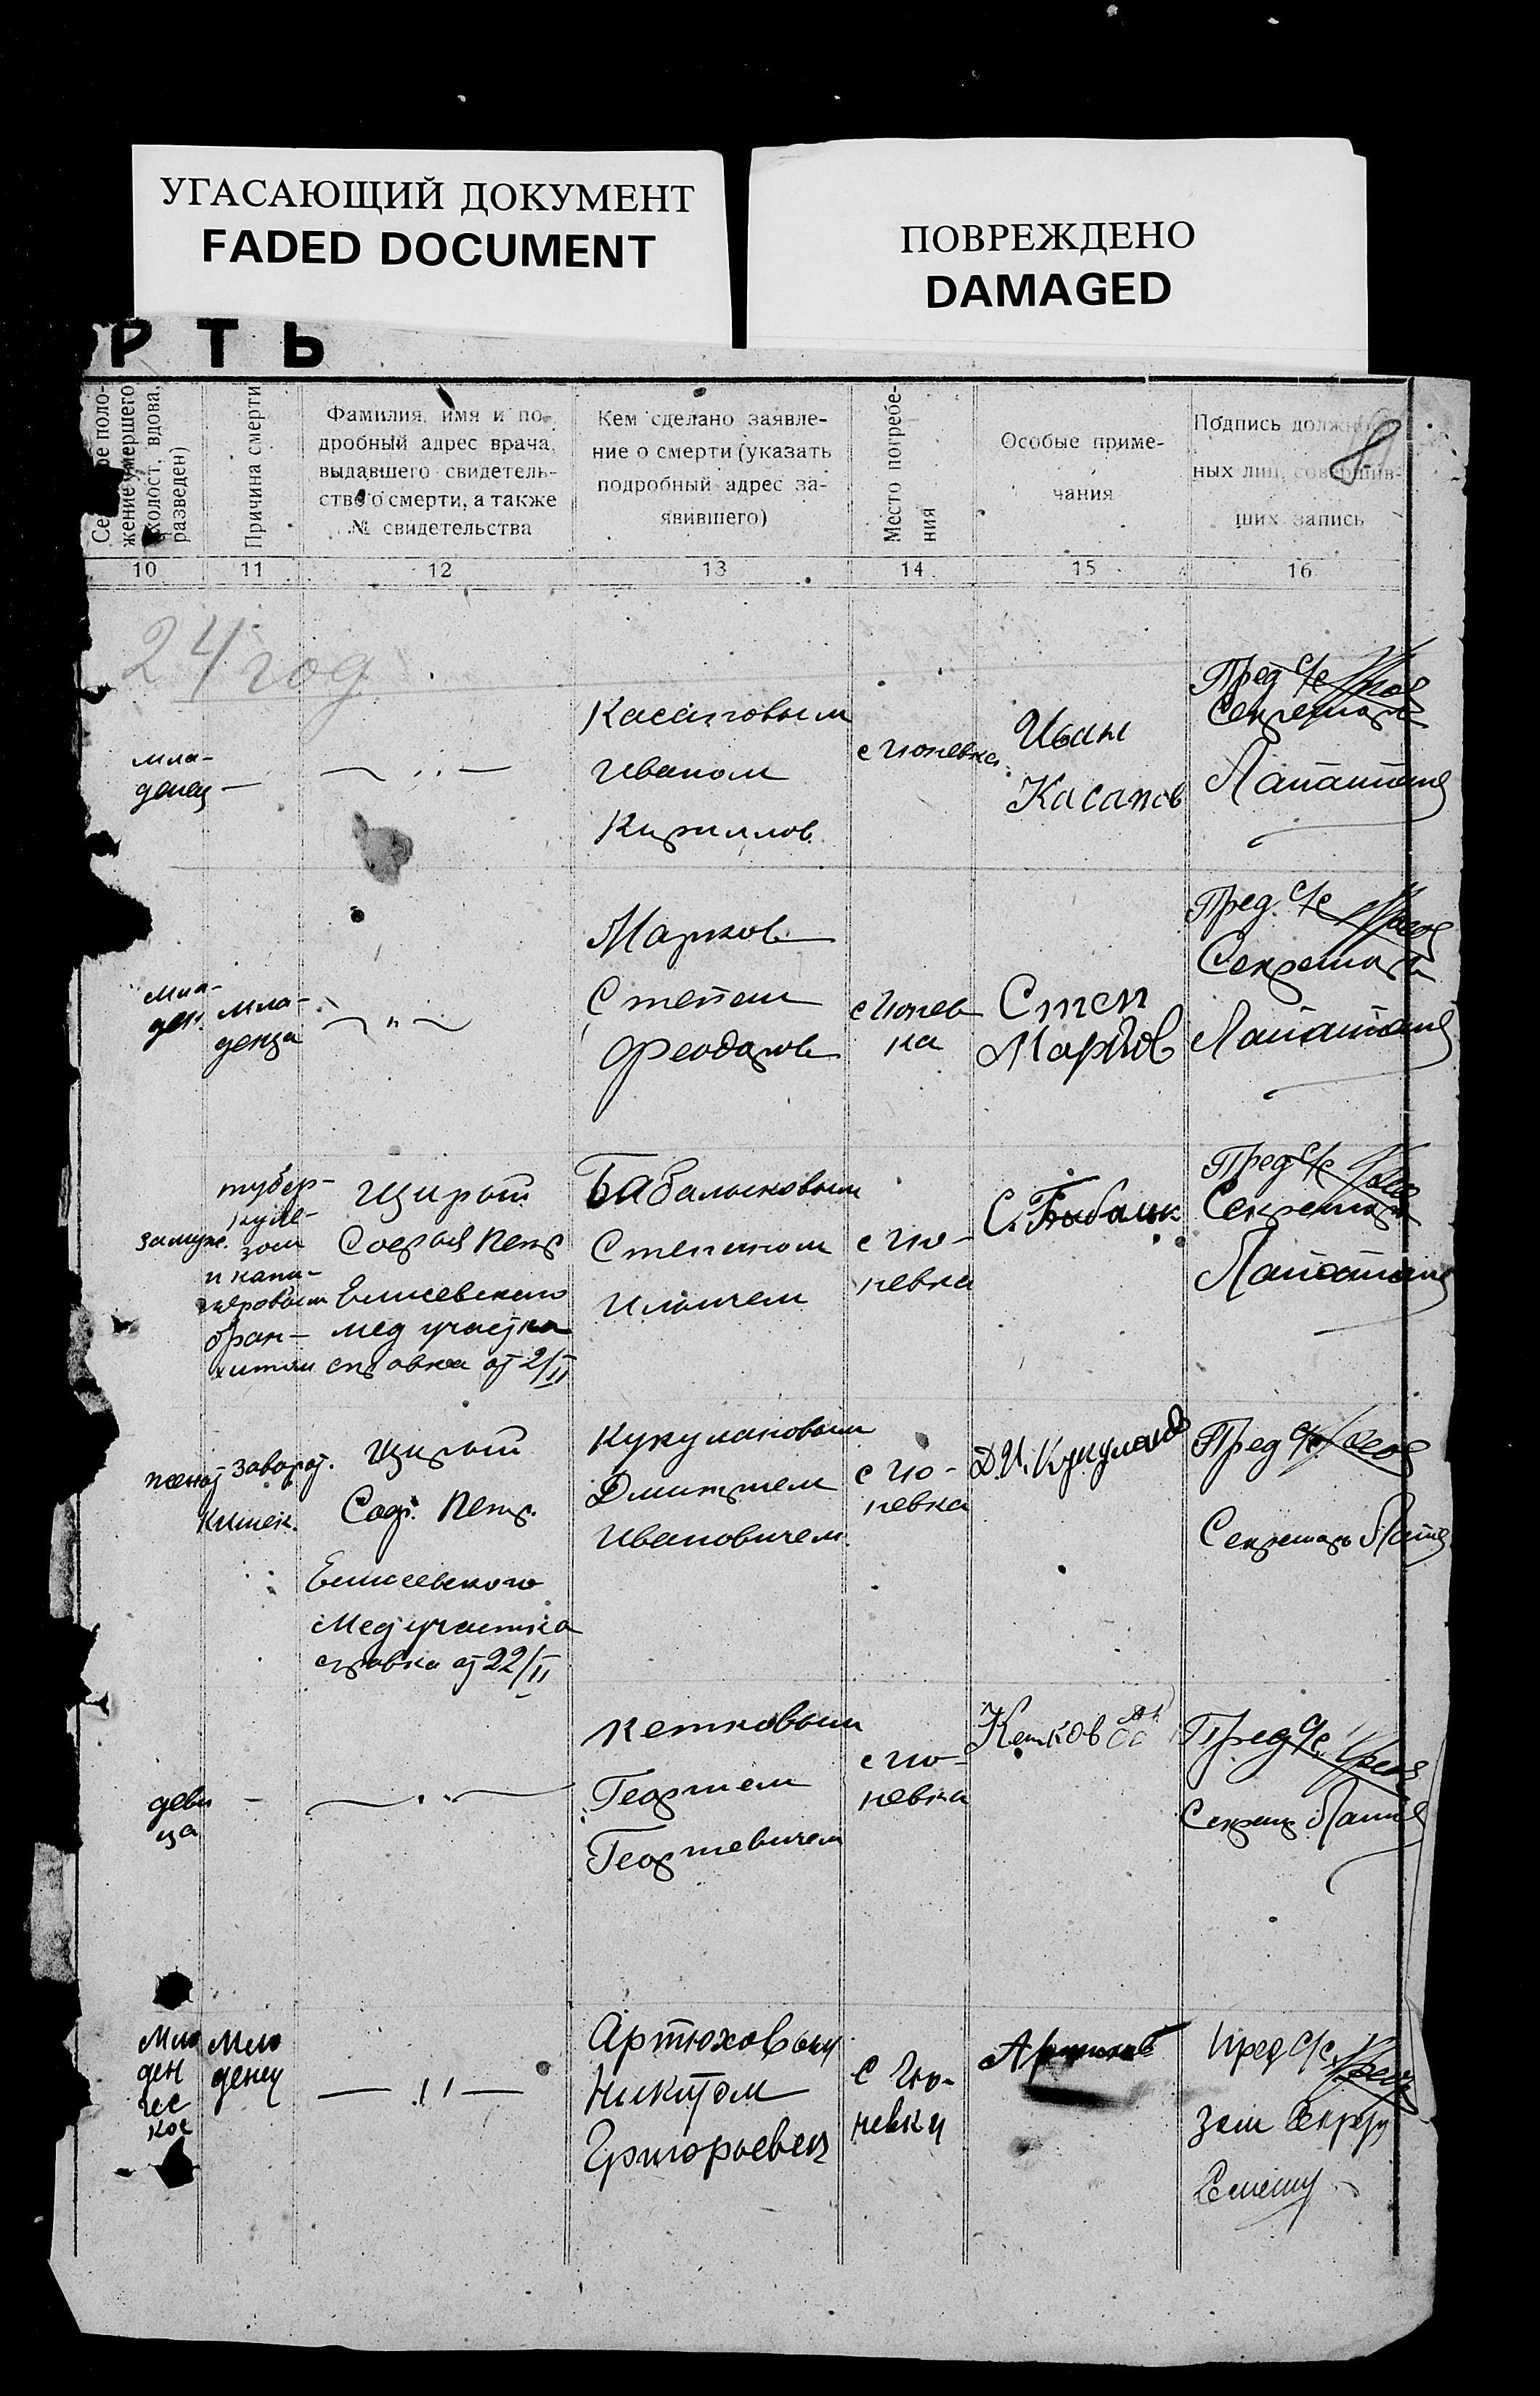 УГАСАЮЩИЙ ДОКУМЕНТ
FADED DOCUMENT
ПОВРЕЖДЕНО
DAMAGED
РТЬ
жение умершего
(холост, вдова,
разведен)
Причина смерти
Фамилия, имя и по-
дробный адрес врача,
выдавшего свидетель-
ство о смерти, а также
№ свидетельства
Кем сделано заявле-
ние о смерти (указать
подробный адрес за-
явившего)
Место погребе-
ния
Особые приме-
чания
Подпись должн
ных лиц, совершив-
ших запись
8
10
11
12
13
14
15
16
24 год
мла-
денец —
— " —
Касаповым
Иваном
Кириллов.
с Гюневка
Иван
Касапов
Пред с/с
Секретарь
мла-
ден.
мла-
денца
— " —
Марков
Степан
Феодоров
с Гюнев
ка
Степ
Марков
Пред. с/с
Секретарь
замуж.
тубер-
куле-
зом
и капи-
бран-
хитом
Щирый
Софья Петр
Елисеевского
мед участка
справка от 2/II
Бабалыковым
Степаном
Ильичем
с Гю-
невка
С. Бабалык
Пред с/с
Секретарь
женат
заворот.
кишек.
Щирый
Соф. Петр.
Елисеевского
Мед участка
справка от 22/II
Кукулаковым
Дмитрием
Ивановичем.
с Гю-
невка
Д.И. Кукулаков
Пред с/с
Секретарь
деви
ца
—
— " —
Кетковым
Георгием
Георгиевичем
с Гю-
невка
Кетков
Пред с/с
Секрет
Мла
ден
чес
кое
Мла
денец
— " —
Артюховым
Никитом
Григорьевеч
с Гю-
невки
Артюхов
Пред с/с
Зам Секрет